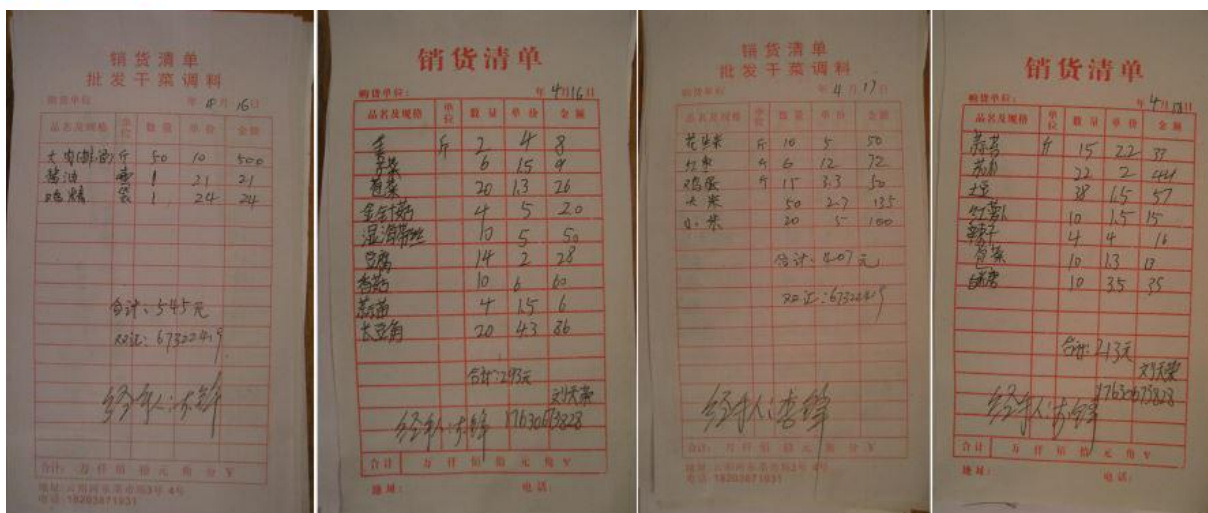 销货清单
批发干菜调料
购货单位 年4月16日
品名及规格 单位 数量 单价 金额
大肉(排酸) 斤 50 10 500
酱油 1 21 21
鸡精 袋 1 24 24
合计:545元
双汇:67322419
经手人:
合计: 万 仟 佰 拾 元 角 分 ¥
销货清单
购货单位: 年4月16日
品名及规格 单位 数量 单价 金额
姜 斤 2 4 8
6 1.5 9
20 1.3 26
金针菇 4 5 20
湿海带丝 10 5 50
豆腐 14 2 28
香菇 10 6 60
蒜苗 4 1.5 6
长豆角 20 4.3 86
合计:293元
刘天荣
经手人: 17630673828
合计 万 仟 佰 拾 元 角 ¥
地址: 电话:
销货清单
批发干菜调料
购货单位 年4月17日
品名及规格 单位 数量 单价 金额
花生米 斤 10 5 50
红枣 6 12 72
鸡蛋 斤 15 3.3 50
大米 50 2.7 135
小米 20 5 100
合计:407元
双汇:67322419
经手人:李锋
合计: 万 仟 佰 拾 元 角 分 ¥
销货清单
购货单位: 年4月18日
品名及规格 单位 数量 单价 金额
蒜苔 斤 15 2.2 33
22 2 44
土豆 38 1.5 57
红萝卜 10 1.5 15
辣子 4 4 16
10 1.3 13
10 3.5 35
合计:213元
刘天荣
17630673828
经手人:
合计 万 仟 佰 拾 元 角 ¥
地址: 电话: